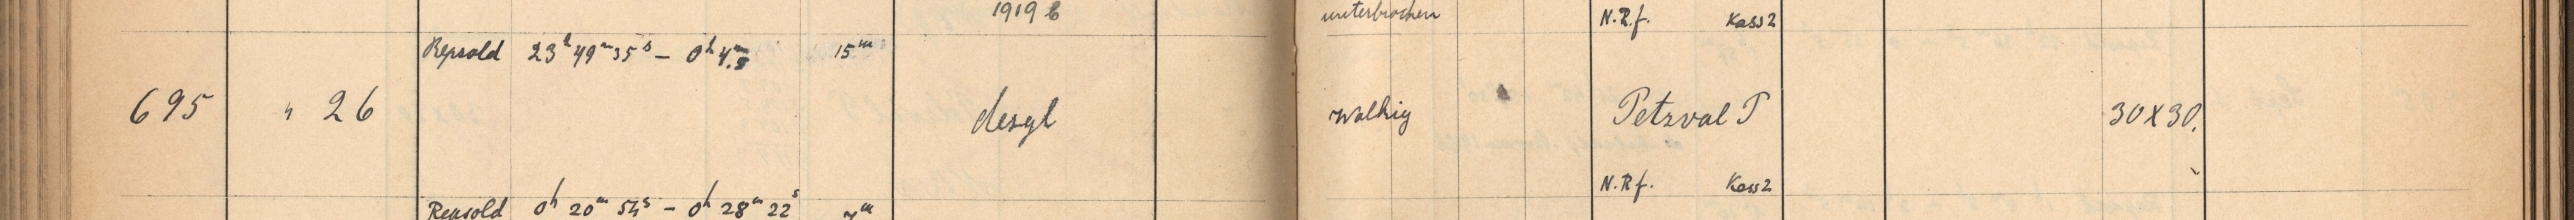 1919 b unterbrochen N.R.f. Kass2
Repsold 23h 49m 35s — 0h 4m,5 15m
695 " 26 desgl wolkig Petzval P 30x30.
N.R.f. Kass2
Repsold 0h 20m 54s — 0h 28m 22s 7m